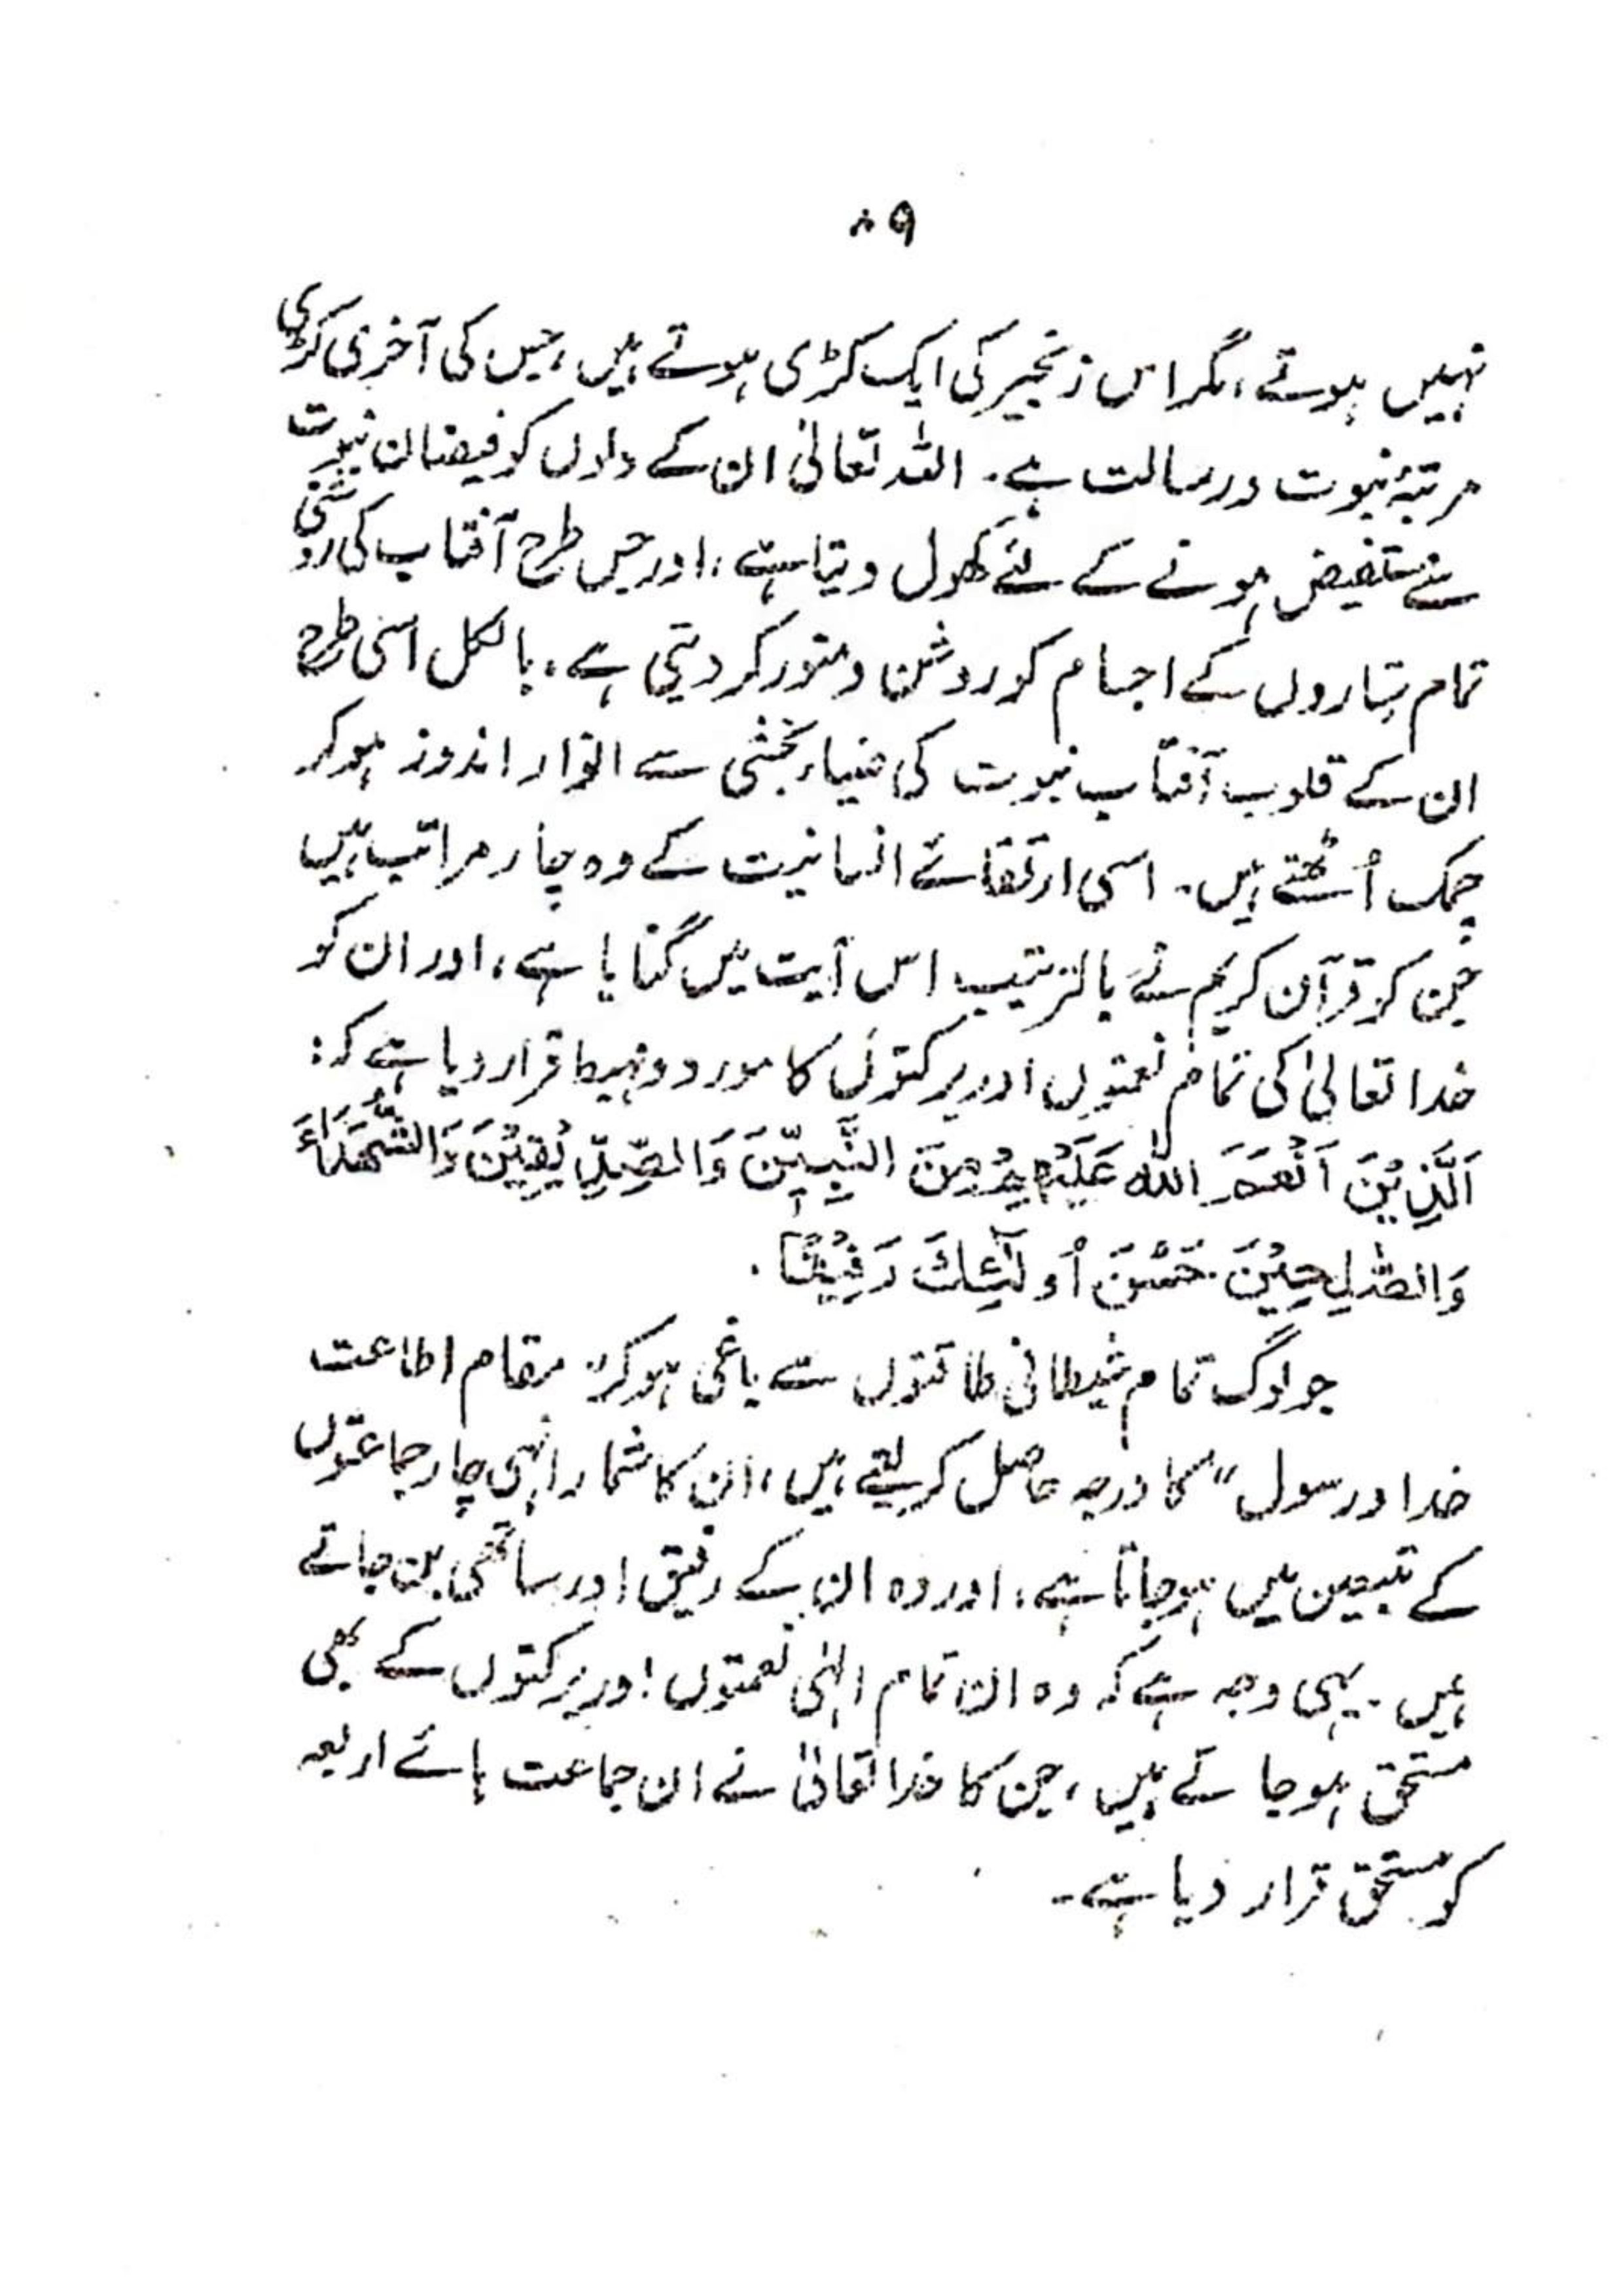 ۸۹
نہیں ہوتے، مگر اس زنجیر کی ایک کڑی ہوتے ہیں، جس کی آخری کڑی
مرتبۂ نبوت ورسالت ہے۔ اللہ تعالیٰ ان کے دلوں کو فیضان نبوت
سے مستفیض ہونے کے لئے کھول دیتا ہے، اور جس طرح آفتاب کی روشنی
تمام ستاروں کے اجسام کو روشن و منور کر دیتی ہے، بالکل اسی طرح
ان کے قلوب آفتاب نبوت کی ضیاء بخشی سے انوار اندوز ہوکر
چمک اُٹھتے ہیں۔ اسی ارتقائے انسانیت کے وہ چار مراتب ہیں
جن کو قرآن کریم نے بالترتیب اس آیت میں گنایا ہے، اور ان کو
خدا تعالیٰ کی تمام نعمتوں اور برکتوں کا مورد و مہبط قرار دیا ہے کہ:
اَلَّذِیْنَ اَنْعَمَ اللہُ عَلَیْهِمْ مِنَ النَّبِیِّنَ وَالصِّدِّیْقِیْنَ وَالشُّهَدَآءَ
وَالصّٰلِحِیْنَ۔ حَسُنَ اُولٰٓئِكَ رَفِیْقًا۔
جو لوگ تمام شیطانی طاقتوں سے باغی ہوکر "مقام اطاعت
خدا ورسول" کا درجہ حاصل کر لیتے ہیں، ان کا شمار انہی چار جماعتوں
کے تبعین میں ہوجاتا ہے، اور وہ ان کے رفیق اور ساتھی بن جاتے
ہیں۔ یہی وجہ ہے کہ وہ ان تمام الہٰی نعمتوں اور برکتوں کے بھی
مستحق ہوجاتے ہیں، جن کا خدا تعالیٰ نے ان جماعت ہائے اربعہ
کو مستحق قرار دیا ہے۔